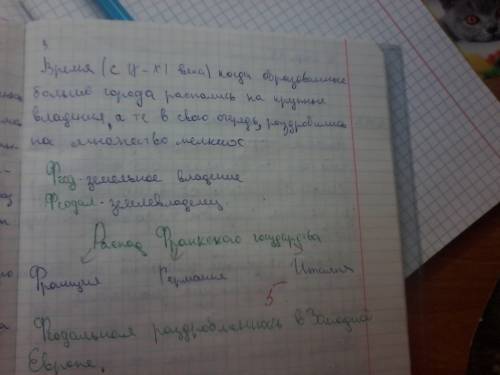 Время (с IX-XI века) когда образованные
большие города распались на крупные
владения, а те в свою очередь, раздробились
на множество мелких
Феод - земельное владение
Феодал - землевладелец
Распад Франкского государства
Франция Германия Италия
5
Феодальная раздробленность в Западной
Европе.